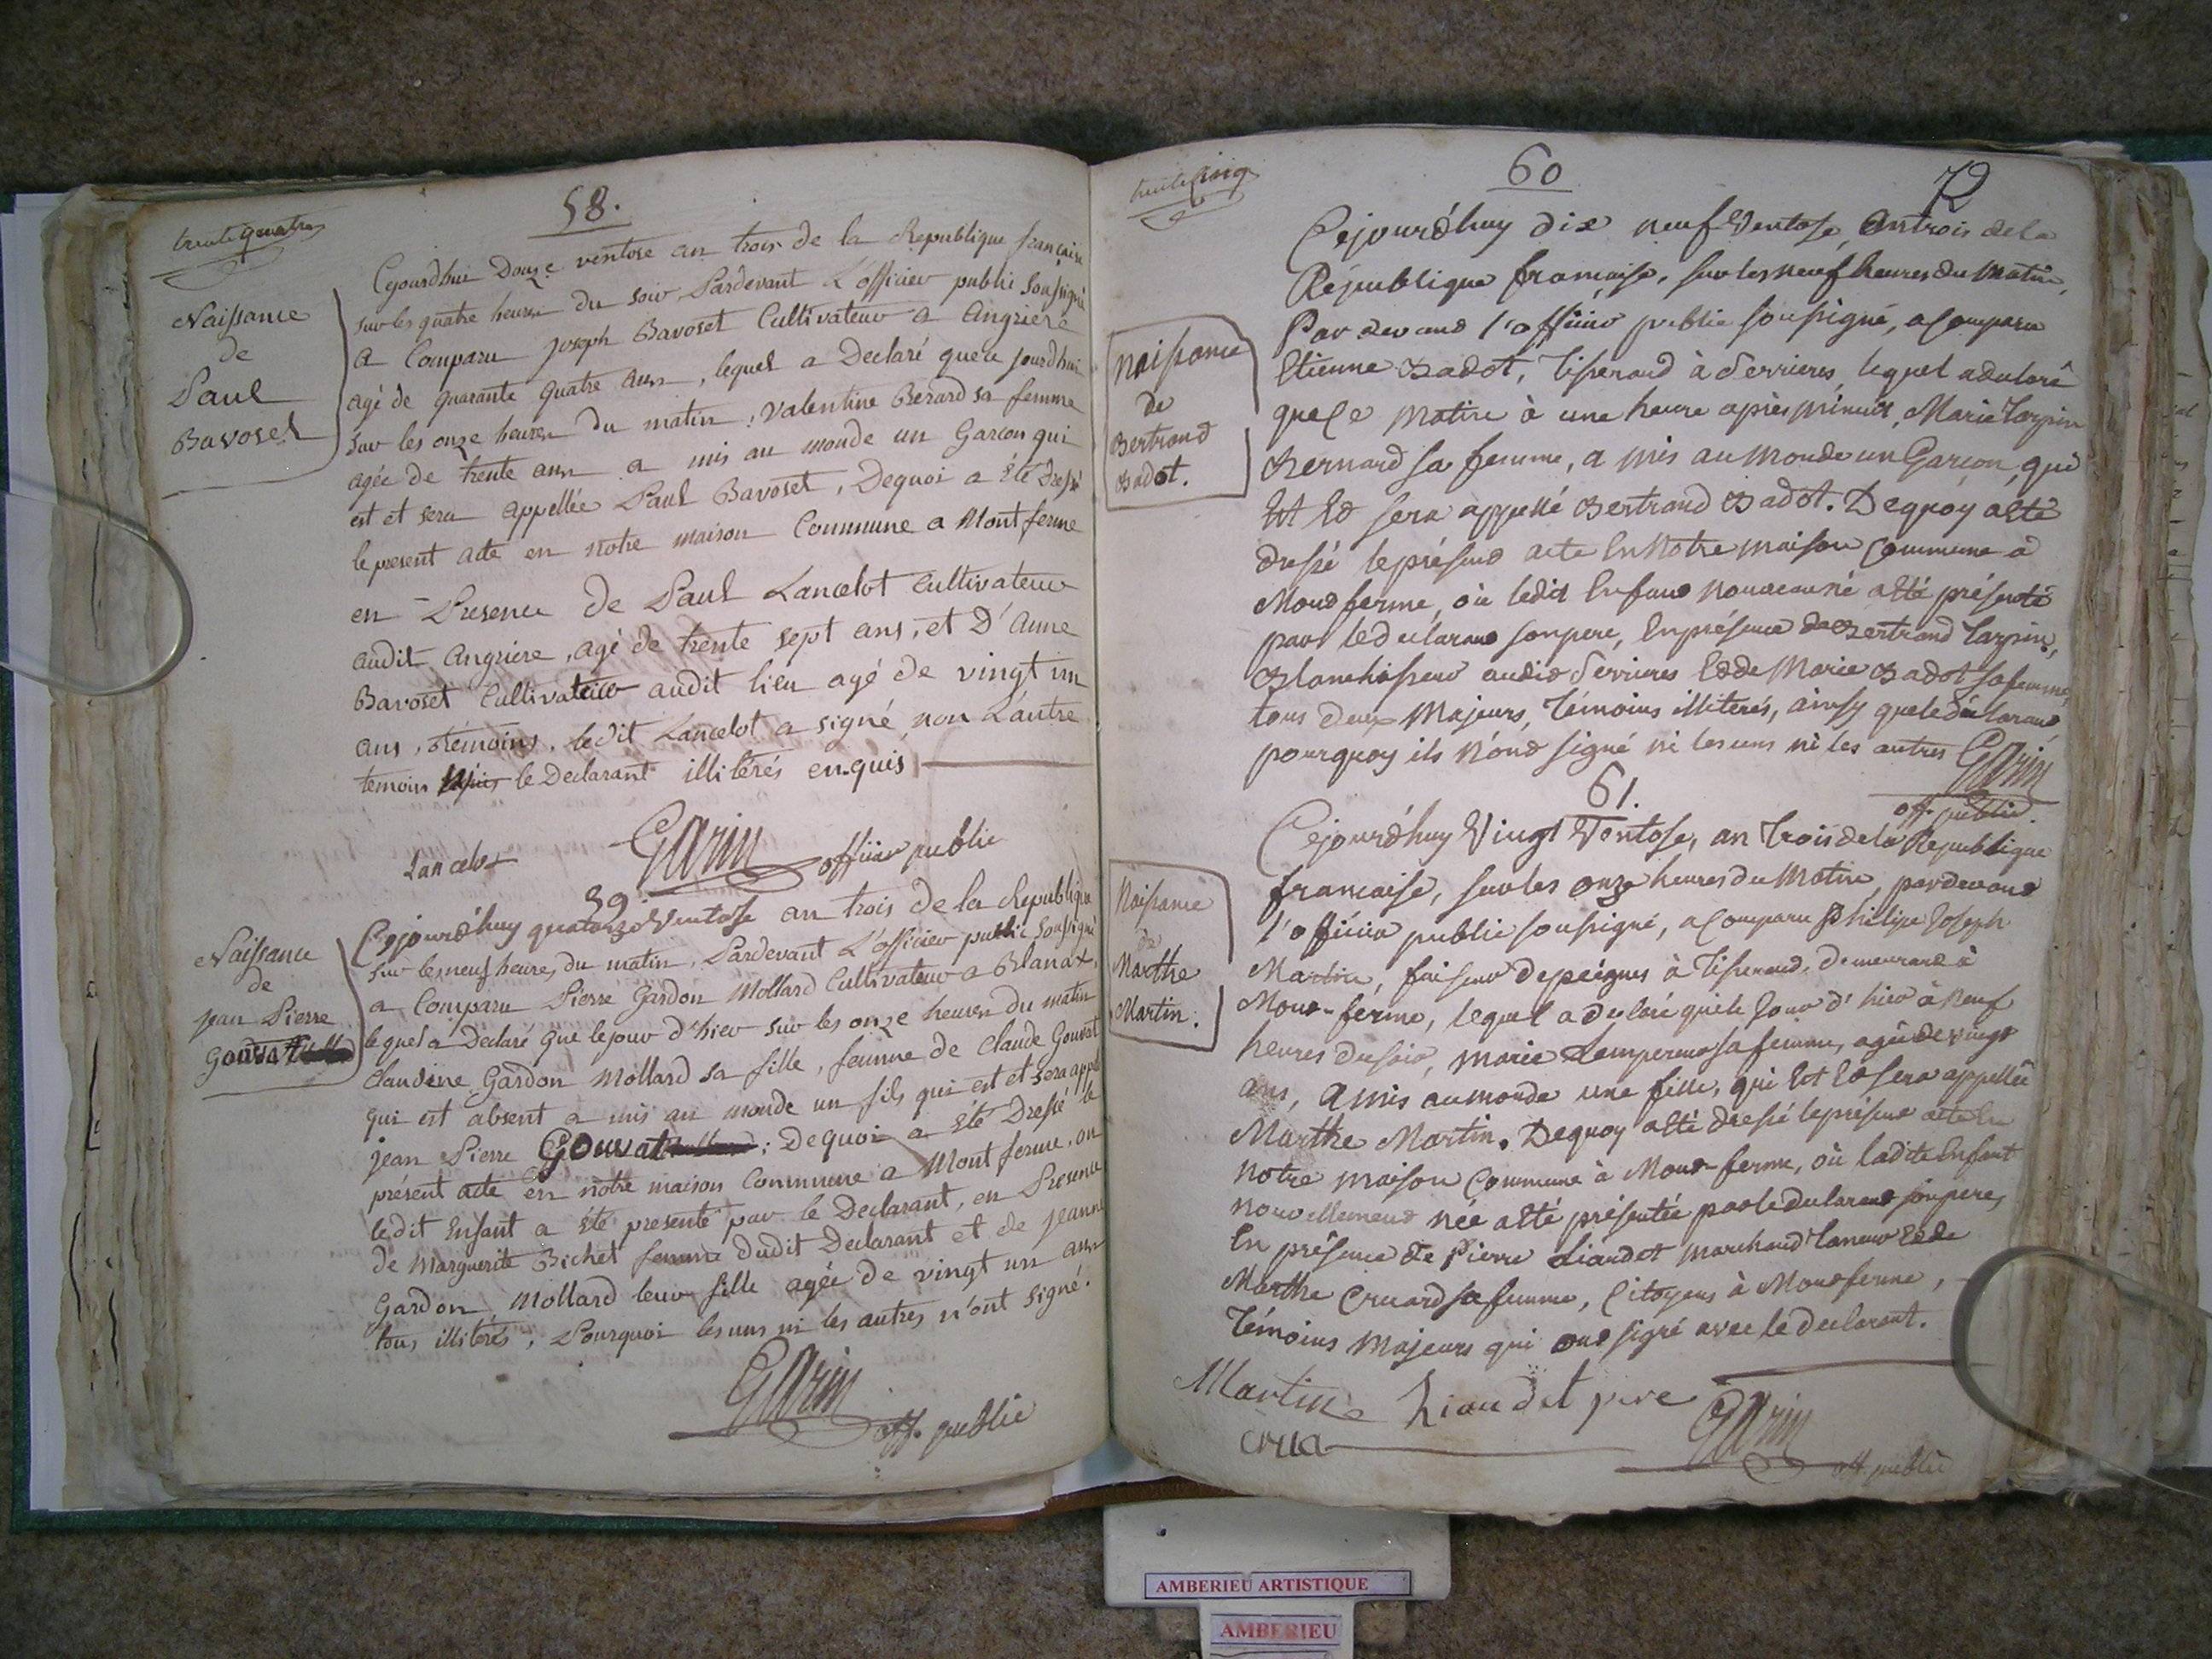 trente quatre
58.
Cejourdhui Douze ventose an trois de la Republique française
sur les quatre heures du soir, Pardevant L'officier public soussigné
a Comparu joseph Bavoset Cultivateur a Angriere
agé de quarante quatre ans, lequel a Declaré que ce jourdhui
sur les onze heures du matin, valentine Berard sa femme
agée de trente ans a mis au monde un Garcon qui
est et sera appellée Paul Bavoset, Dequoi a été Dressé
le present acte en notre maison Commune a Mont ferme
en Presence de Paul Lancelot cultivateur
audit angriere, agé de trente sept ans, et D'anne
Bavoset Cultivateur audit lieu agé de vingt un
ans, témoins, ledit Lancelot a signé, non L'autre
temoin le Declarant illitérés enquis
Naissance
de
Paul
Bavoset
Lancelot Garin officier public
59.
Cejourd'huy quatorze Ventose an trois de la Republique
sur les neuf heures du matin, Pardevant L'officier public soussigné
a Comparu Pierre Gardon Mollard Cultivateur a Blanat,
lequel a Declaré que le jour d'hier sur les onze heures du matin
Claudine Gardon Mollard sa fille, femme de Claude Gouvat
qui est absent a mis au monde un fils qui est et sera appellé
jean Pierre Gouvat ; Dequoi a été Dressé le
présent acte en notre maison Commune a Mont ferme, ou
ledit Enfant a été presenté par le Declarant, en Presence
de Marguerite Bichet femme dudit Declarant et de jeanne
Gardon Mollard leur fille agée de vingt un ans
tous illitérés, Pourquoi les uns ni les autres n'ont signé.
Naissance
de
jean Pierre
Gouvat
Garin
off. public
trente cinq
60
72
Cejourd'huy dix neuf Ventose, an trois de la
République francaise, sur les neuf heures du matin,
Par devand l'officier public soussigné, a Comparu
Etienne Badot, Tisserand à Serrieres, lequel a déclaré
que Ce matin à une heure après minuit, Marie Tarpin
Bernard sa femme, a mis au monde un Garcon, qui
Est Et sera appellé Bertrand Badot. Dequoy a été
dressé le présend acte En Notre maison Commune à
Mondferme, où ledit Enfand nouveau né a été présenté
par le declarand son pere, En présence de Bertrand Tarpin,
Blanchisseur audit Serrieres Et de Marie Badot sa femme,
tous deux Majeurs, Témoins illiterés, ainsy que le déclarand,
pourquoy ils n'ond signé ni les uns ni les autres Garin
off. public.
Naissance
de
Bertrand
Badot.
61.
Cejourd'huy Vingt Ventose, an trois de la République
francaise, sur les onze heures du Matin, pardevand
l'officier public soussigné, a Comparu Philipe Joseph
Martin, faiseur de peignes à Tisserand, demeurand à
Mond-ferme, lequel a declaré que le Jour d'hier à neuf
heures du soir, marie sa femme, agée de vingt
ans, a mis au monde une fille, qui Est Et sera appellée
Marthe Martin. Dequoy a été dressé le présend acte En
notre maison Commune à Mond-ferme, où ladite Enfant
nouvellemend née a été présentée par le declarand son pere,
En présence de Pierre Liandet marchand Taneur Et de
Marthe Cruard sa femme, Citoyens à Mondferme,
Témoins Majeurs qui ond signé avec le declarant.
Naissance
de
Marthe
Martin.
Martin Liaudet pere Garin
crua off. public
AMBERIEU ARTISTIQUE
AMBERIEU